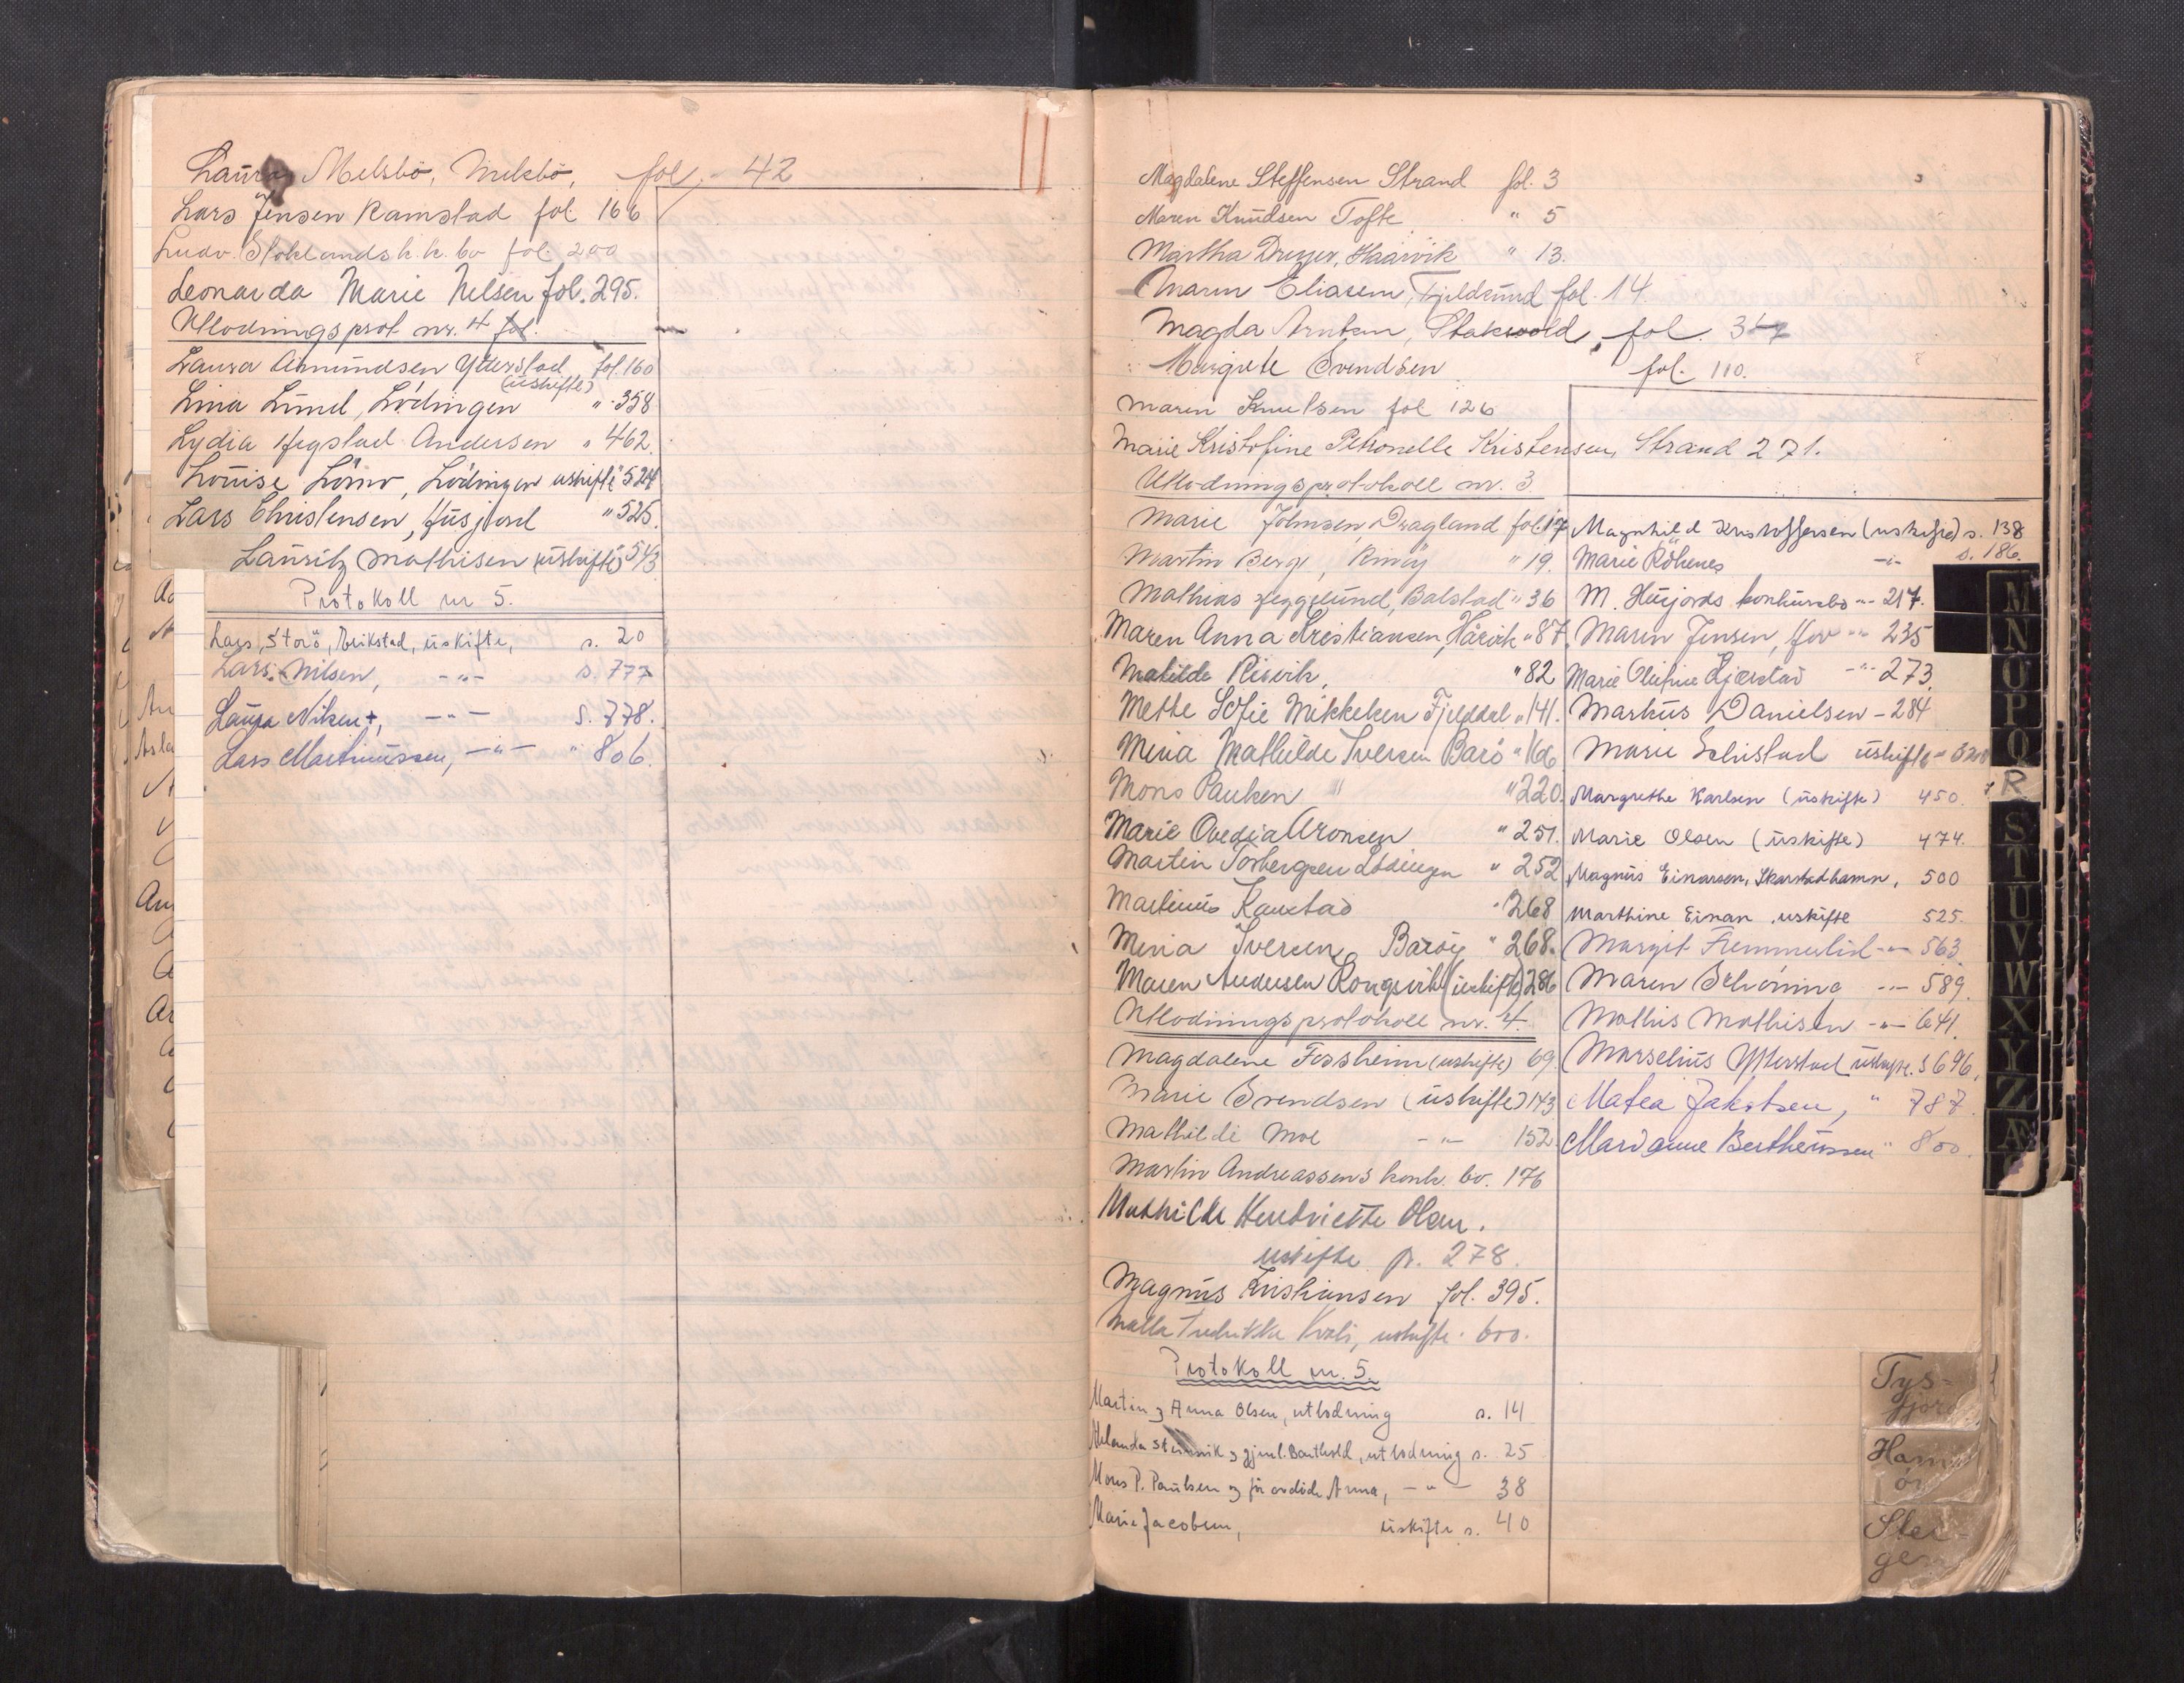 Laura Melsbö, Melsbö, fol. 42
Lars Jensen Ramstad fol. 166
Ludv. k.k. bo fol. 200
Leonarda Marie Nelsen fol. 295.
Utlodningsprot nr. 4 fol.
Laura Amundsen Ytterstad, fol. 160
(uskifte)
Lina Lund, Lödingen " 358
Lydia Hegstad Andersen " 462
Louise Lömo, Lödingen uskifte " 524
Lars Christensen, Husjord " 526.
Lauritz Mathisen (uskifte) 543
Protokoll nr 5.
Lars Storö, Erikstad, uskifte, s. 20
Lars Nilsen, -"- s. 777
Laura Nilsen +, -"- s. 778.
Lars Martinussen, -"- " 806.
Magdalene Steffensen Strand fol. 3
Maren Knudsen Tofte " 5
Martha Dreyer, Haarvik " 13.
Maren Eliasen, Fjeldsund fol. 14.
Magda Arntsen, fol. 37
Margrete Svendsen fol. 110.
Maren Knutsen fol 126
Marie Kristofine Petronelle Kristensen, Strand 271.
Utlodningsprotokoll nr. 3
Marie Johnsen, Dragland fol. 17
Martin Berg, Rinöy " 19.
Mathias Jeggelund, Balstad " 36
Maren Anna Kristiansen, Hårvik " 87
Matilde Risvik, " 82
Mette Sofie Mikkelsen Fjelddal " 141.
Mina Mathilde Iversen Barö " 166
Mons Paulsen " 220
Marie Ovedia Aronsen " 251.
Martin Torbergsen Lödingen " 252
Martinus Kanstad " 268
Mina Iversen, Baröy " 268.
Maren Andersen Kongsvik (uskifte) 286
Utlodningsprotokoll nr. 4.
Magdalene Fossheim (uskifte) 69.
Marie Svendsen (uskifte) 143
Mathilde Moe -"- 152
Martin Andreassens konk. bo. 176
Mathilde Hentriette Olsen.
uskifte p. 278.
Magnus Kristiansen fol. 395.
Malla Fredrikke Kvoli, uskifte. 600.
Protokoll nr. 5.
Martin og Anna Olsen, utlodning s. 14
Steinvik og gjenl. Barthold, utlodning s. 25
Mons P. Paulsen og før avdöde Anna, -"- 38
Marie Jacobsen, uskifte s. 40
Magnhild Kristoffersen (uskifte) s. 138
Marie Röhenes -"- s. 186.
M. Husjords konkursbo -"- 217.
Maren Jensen, Hov -"- 235
Marie Olufine Kjærstad -"- 273.
Markus Danielsen - 284
Marie Schistad uskifte - 320
Margrethe Karlsen (uskifte) 450.
Marie Olsen (uskifte) 474.
Magnus Einarsen, Skarstadhamn, 500
Marthine Einan, uskifte 525.
Margit Fremmerlid -"- 563.
Maren Schöning -"- 589.
Mathis Mathisen -"- 641
Marselius Ytterstad uskifte. s 696.
Matea Jakobsen, " 787.
Marianne Bertheussen " 800.
M
N
O
P
Q
R
S
T
U
V
W
X
Y
Z
Æ
Tys-
fjord
Ham
ör
Stei-
gen